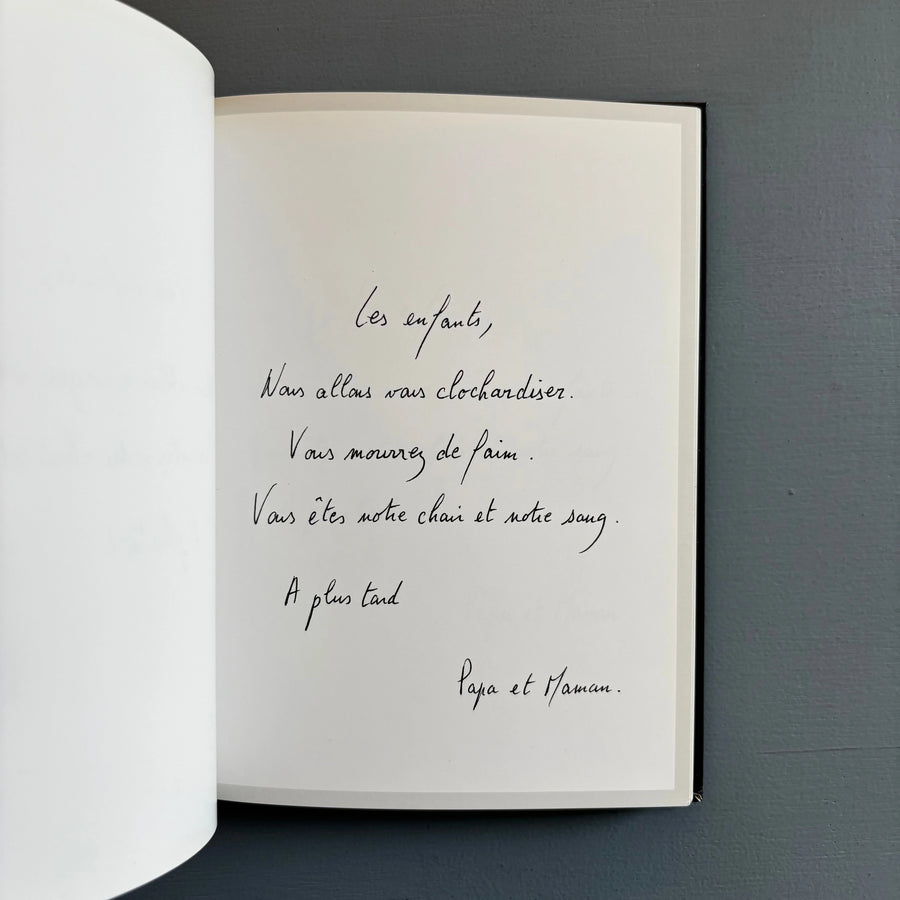 Les enfants,
Nous allons vous clochardiser.
Vous mourrez de faim.
Vous êtes notre chair et notre sang.
A plus tard
Papa et Maman.